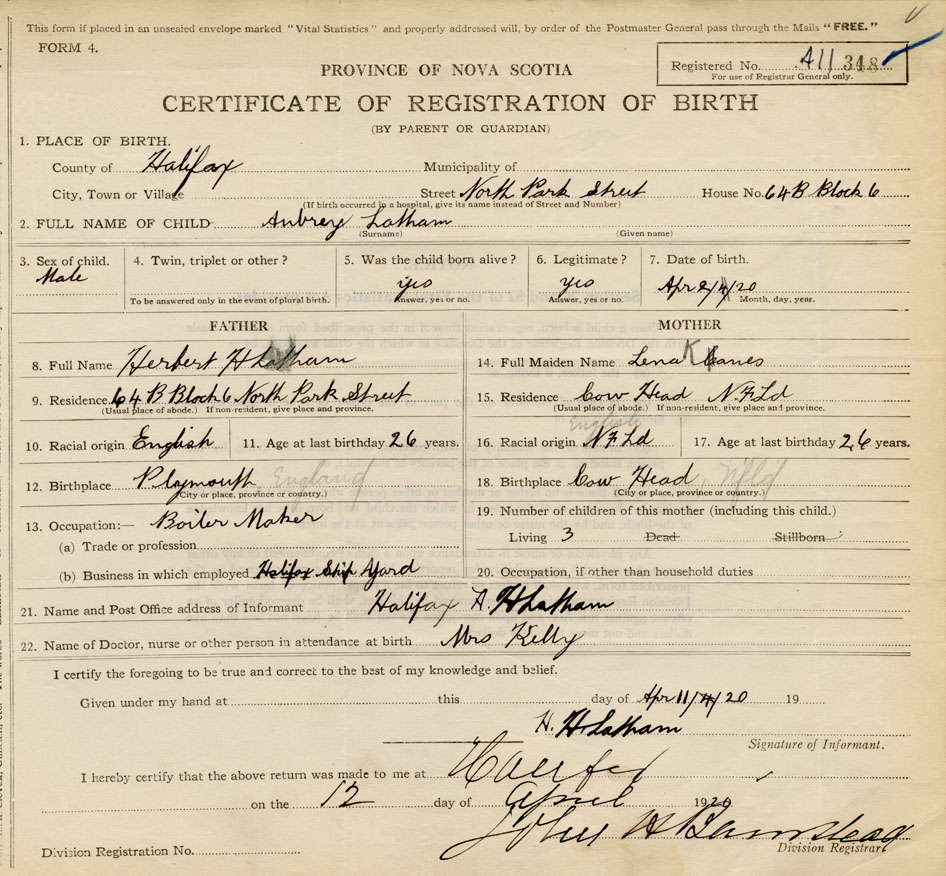 This form if placed in an unsealed envelope marked "Vital Statistics" and properly addressed will, by order of the Postmaster General pass through the Mails "FREE."
FORM 4.
Registered No. A11 348
For use of Registrar General only.
PROVINCE OF NOVA SCOTIA
CERTIFICATE OF REGISTRATION OF BIRTH
(BY PARENT OR GUARDIAN)
1. PLACE OF BIRTH.
County of Halifax Municipality of
City, Town or Village Street North Park Street House No. 64B Block 6
(If birth occurred in a hospital, give its name instead of Street and Number)
2. FULL NAME OF CHILD Aubrey Latham
(Surname) (Given name)
3. Sex of child. 4. Twin, triplet or other? 5. Was the child born alive? 6. Legitimate? 7. Date of birth.
Male yes yes Apr
To be answered only in the event of plural birth. Answer, yes or no. Answer, yes or no. Month, day, year.
FATHER MOTHER
8. Full Name Herbert H Latham 14. Full Maiden Name Lena
9. Residence. 64 B Block 6 North Park Street 15. Residence Cow Head N.F.Ld
(Usual place of abode.) If non-resident, give place and province. (Usual place of abode.) If non-resident, give place and province.
English
10. Racial origin English 11. Age at last birthday 26 years. 16. Racial origin N.F.Ld 17. Age at last birthday 26 years.
12. Birthplace Plymouth, England 18. Birthplace Cow Head, Nfld
(City or place, province or country.) (City or place, province or country.)
13. Occupation:— Boiler Maker 19. Number of children of this mother (including this child.)
(a) Trade or profession Living 3 Dead Stillborn
(b) Business in which employed Halifax Ship Yard 20. Occupation, if other than household duties
21. Name and Post Office address of Informant Halifax H. H Latham
22. Name of Doctor, nurse or other person in attendance at birth Mrs Kelly
I certify the foregoing to be true and correct to the best of my knowledge and belief.
Given under my hand at this day of Apr 11/4/20 19
H. H Latham
Signature of Informant.
I hereby certify that the above return was made to me at Halifax
on the 12 day of April 1920
John H Barnstead
Division Registrar.
Division Registration No.